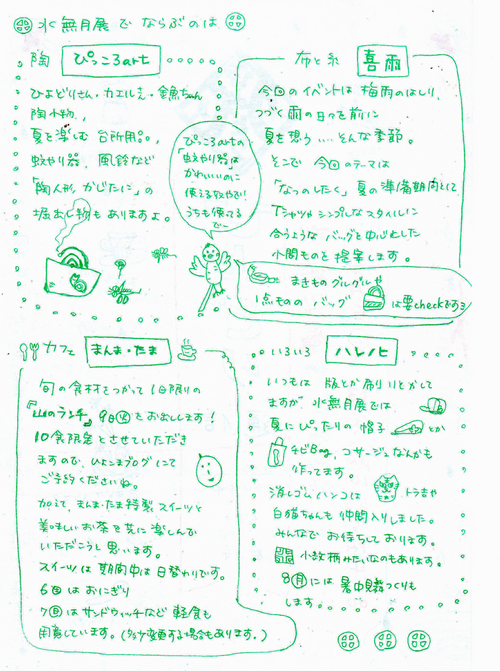 水無月展でならぶのは
陶 ぴっころart
ひよどりさん・カエルさん・金魚ちゃん
陶小物、
夏を楽しむ台所用品、
蚊やり器、風鈴など
「陶人形 かじたに」の
掘おし物もありますよ。
ぴっころartの
「蚊やり器は
かわいいのに
使えるなやでい
うちも使ってる
でー
布と糸 喜雨
今回のイベントは梅雨のはしり、
つづく雨の日々を前に
夏を想う…そんな季節。
そこで 今回のテーマは
「なつのしたく」夏の準備期間として
Tシャツやシンプルなスタイルに
合うような バッグを中心とした
小間ものを提案します。
まきものグルグルや
1点ものの バッグ
は要checkですヨ
カフェ まんま・たま
旬の食材をつかって1日限りの
『山のランチ』9日(火)をお出しします!
10食限定とさせていただき
ますので、ひょこまブログにて
ご予約くださいね。
加えて、まんま・たま特製スイーツと
美味しいお茶を共に楽しんで
いただこうと思います。
スイーツは期間中は日替わりです。
6(土)はおにぎり
7(日)はサンドウィッチなど軽食も
用意しています。(多少変更する場合もあります。)
いろいろ ハレノヒ
いつもは 版とか刷りとかして
ますが 水無月展では
夏にぴったりの帽子 とか
チビBag、コサージュなんかも
作ってます。
消しゴムハンコは トラ吉や
白猫ちゃんも仲間入りしました。
みんなで お待ちしております。
小紋柄みたいなのもあります。
8(月)には 暑中見舞つくりも
します。